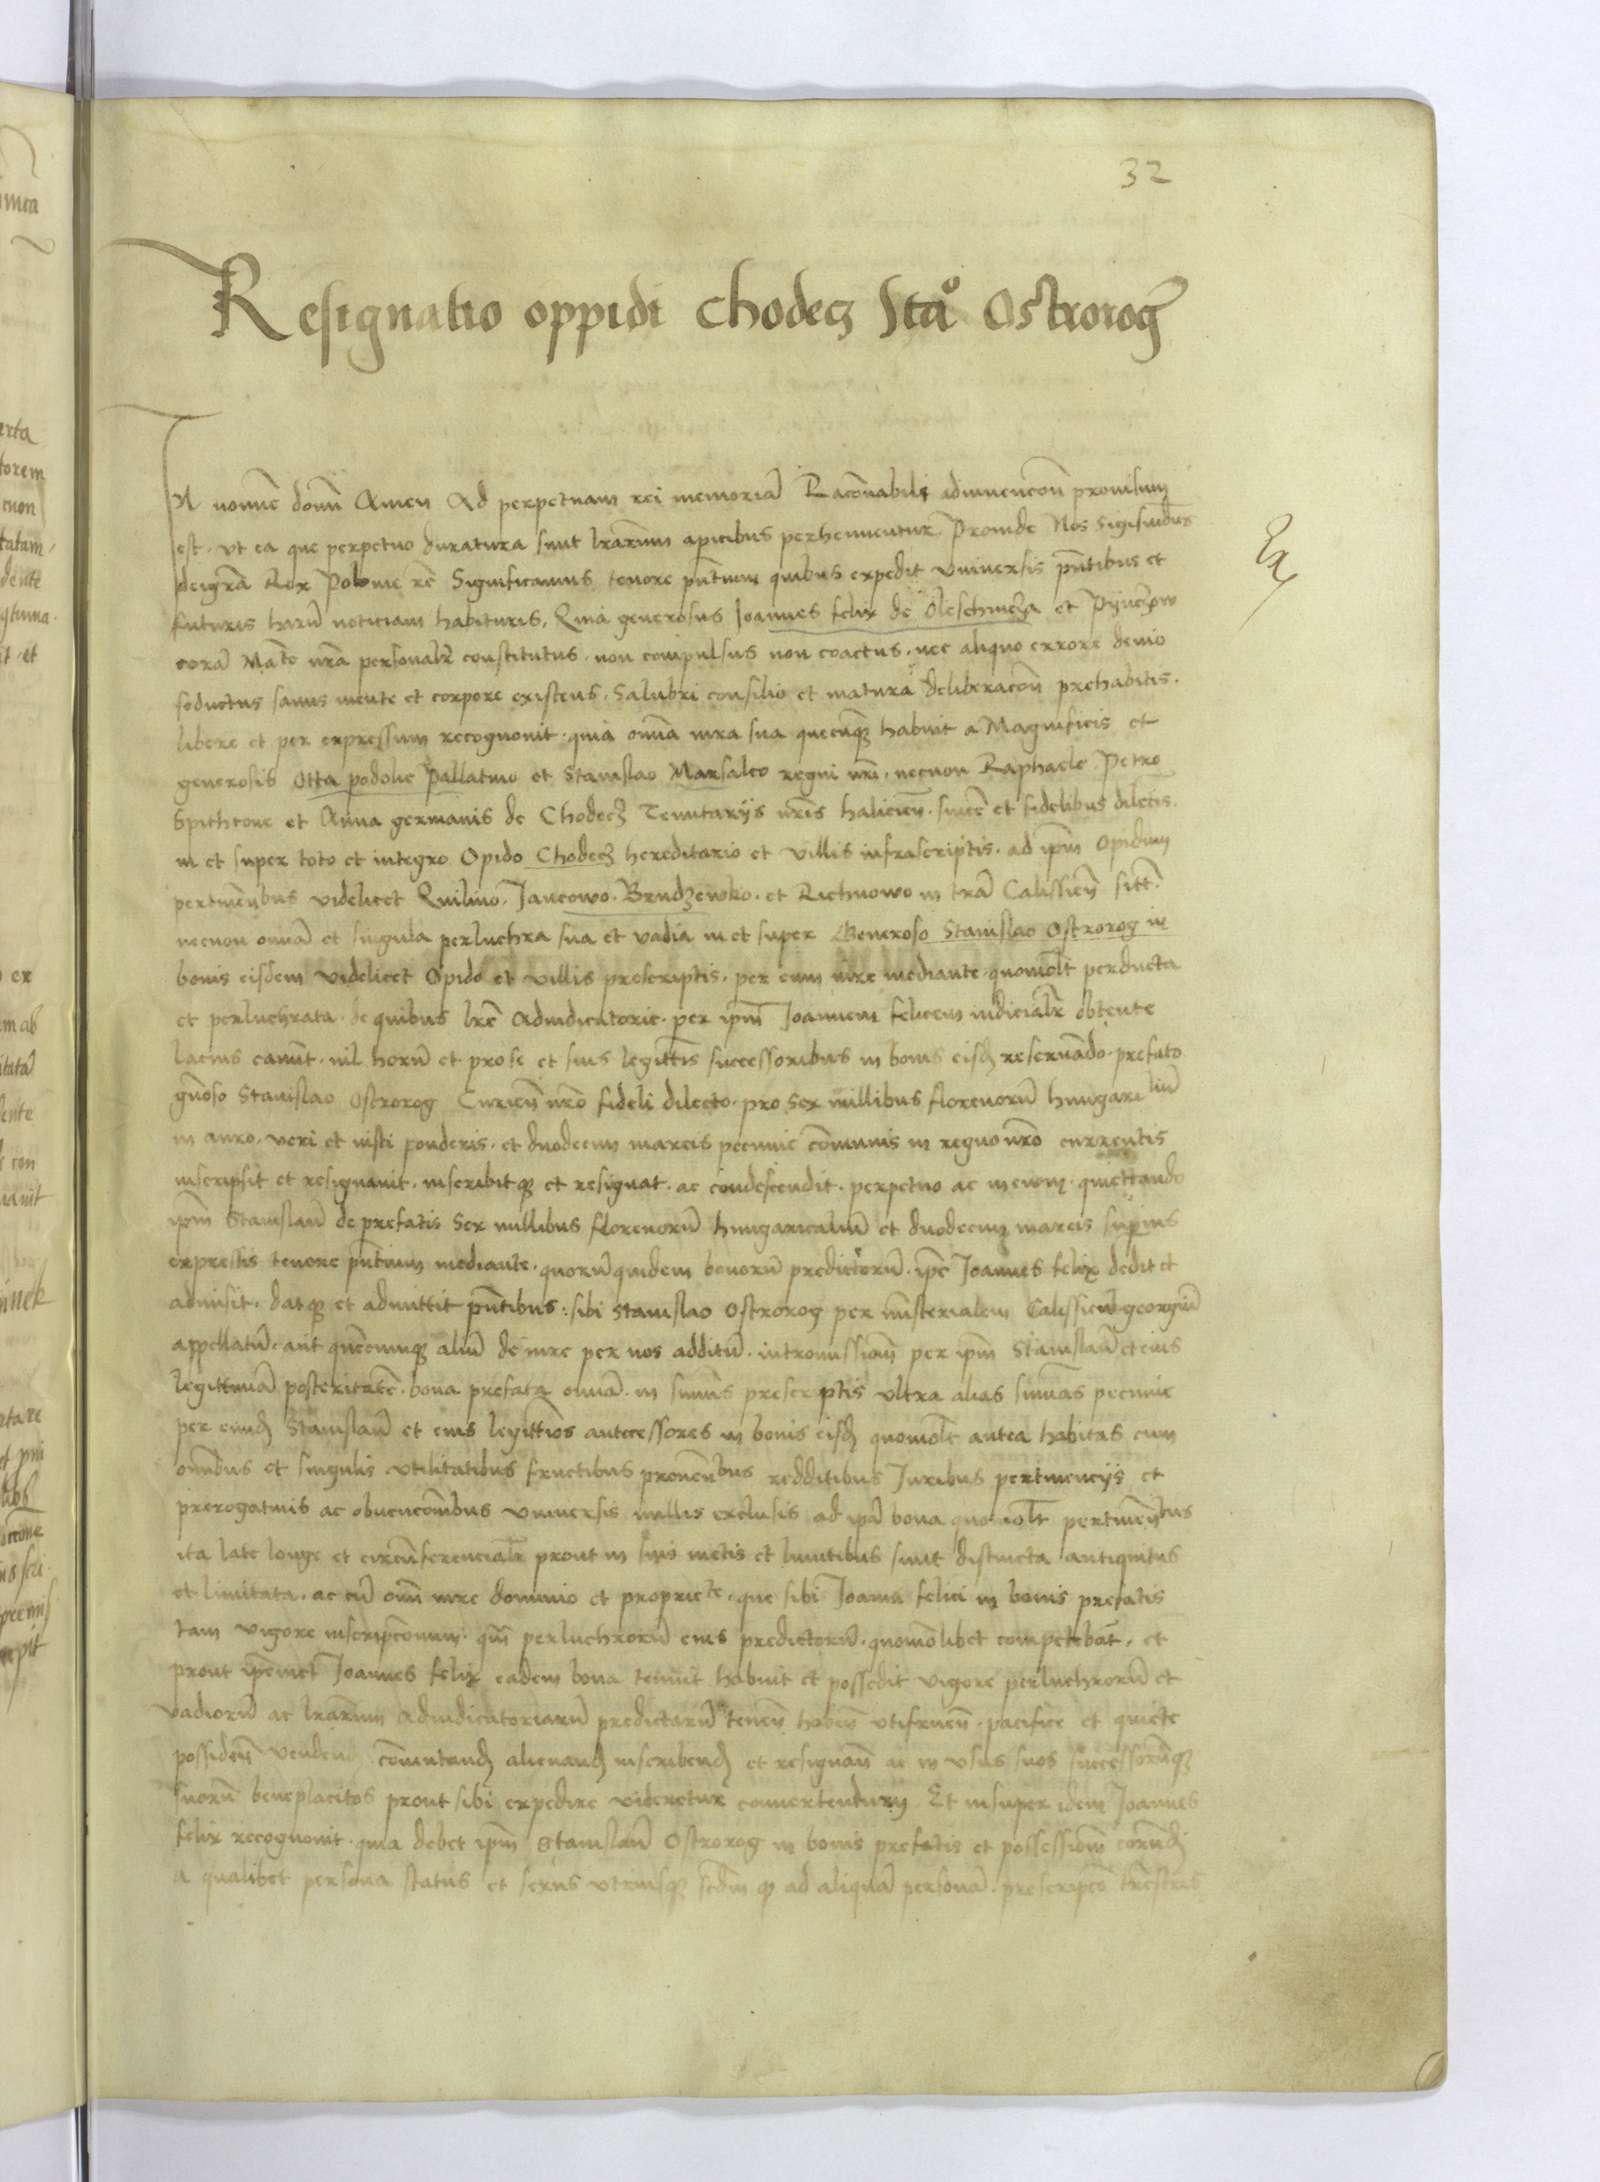 32
Resignatio oppidi Chodecz Stão Ostrorog
In nomine domini Amen Ad perpetuam rei memoriã Racõnabili adinuencõn prouisum
est. vt ea que perpetuo duratura sunt lrarum apicibus perhennentur Proinde Nos Sigismũdus
deigrã Rex Polonie rẽ Significamus tenore pñtium quibus expedit vniuersis pñtibus et
futuris harũ noticiam habituris, Quia generosus Joannes felix de Oleschnicza et Pijnczow
corã Mate nrã personalr constitutus. non compulsus non coactus. nec aliquo errore deuio
seductus sanus mente et corpore existens. salubri consilio et matura deliberacõn prehabitis.
libere et per expressum recognouit. quia omnia iura sua quecũq habuit a Magnificis et
generosis Otta podolie Pallatino et Stanislao Marsalco regni nri. necnon Raphaele Petro
Spithcone et Anna germanis de Chodecz Tenutarijs nris halicien. sincẽ et fidelibus dilectis.
in et super toto et integro Opido Chodecz hereditario et villis infrascriptis. ad ipm Opidum
pertinẽtibus videlicet Quilino. Jancowo. Brudzewko. et Richnowo in trã Calissien sitt.
necnon omniã et singula perluchra sua et vadia in et super Generoso Stanislao Ostrorog in
bonis eisdem videlicet Opido et villis prescriptis. per eum iure mediante. quomolt perducta
et perluchrata. de quibus lre Adiudicatorie. per ipm Joannem felicem iudicialr obtente
lacius canunt. nil horũ et prose et suis legittis successoribus in bonis eisd reseruãdo. prefato
gñoso Stanislao Ostrorog Curien nro fideli dilecto. pro sex millibus florenorũ hungarilium
in auro. veri et iusti ponderis. et duodecim marcis pecunie cõmunis in regno nro currentis
inscripsit et resignauit. inscribitq et resignat. ac condescendit. perpetuo ac in euum. quiettando
ipm Stanislaũ de prefatis sex millibus florenorũ hungaricaliũ et duodecim marcis superius
expressis tenore pñtium mediante. quorũ quidem bonorũ predictorũ. ipe Joannes felix dedit et
admisit. datq et admittit pñtibus: sibi Stanislao Ostrorog per ministerialem Calissien georgiũ
appellatũ. aut quẽcunq aliũ de iure per nos additũ. intromissionẽ per ipm Stanislaũ et eius
legittimã posteritatẽ. bona prefata omniã. in sumis prescriptis vltra alias sumas pecunie
per eund Stanislaũ et eius legittimos antecessores in bonis eisd quomolt antea habitas cum
omibus et singulis vtilitatibus fructibus prouentbus redditibus Juribus pertinencijs et
prerogatiuis ac obuencõnibus vniuersis nullis exclusis ad ipã bona quomolt pertinẽtibus
ita late longe et circũferencialr prout in suis metis et limitibus sunt distincta antiquitus
et limitata. ac cũ omi iure dominio et propriete. que sibi Joanni felici in bonis prefatis
tam vigore inscripcõnum. qm perluchrorũ eius predictorũ. quomolibet competebãt, et
prout ipemet Joannes felix eadem bona tenuit habuit et possedit vigore perluchrorũ et
vadiorũ ac lrarum adiudicatoriarũ predictarũ tenen haben vtifruen. pacifice et quiete
possiden vendend cõmutand alienand inscribend et resignan ac in vsus suos successorũq
suorũ beneplacitos prout sibi expedire videretur conuertendum. Et insuper idem Joannes
felix recognouit. quia debet ipm Stanislaũ Ostrorog in bonis prefatis et possessionẽ eorũd
a qualibet persona status et sexus vtriusq ad aliquã personã.